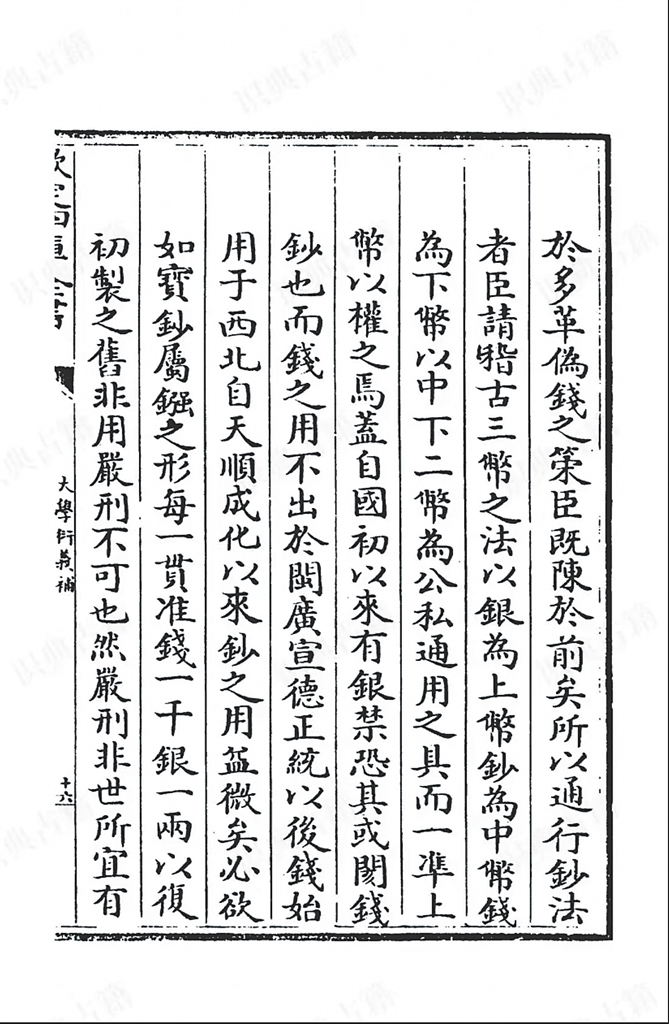 於多革偽錢之策臣既陳於前矣所以通行鈔法
者臣請稽古三幣之法以銀為上幣鈔為中幣錢
為下幣以中下二幣為公私通用之具而一準上
幣以權之焉蓋自國初以來有銀禁恐其或閡錢
鈔也而錢之用不出於閩廣宣德正統以後錢始
用于西北自天順成化以來鈔之用益微矣必欲
如寶鈔屬鏹之形每一貫准錢一千銀一兩以復
初製之舊非用嚴刑不可也然嚴刑非世所宜有
欽定四庫全書
大學衍義補
十六
識典古籍